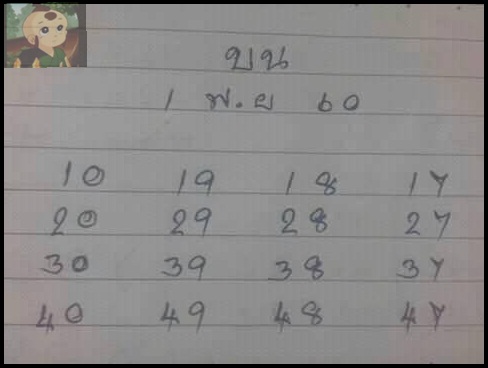 บน
1 พ.ย 60
10 19 18 17
20 29 28 27
30 39 38 37
40 49 48 47